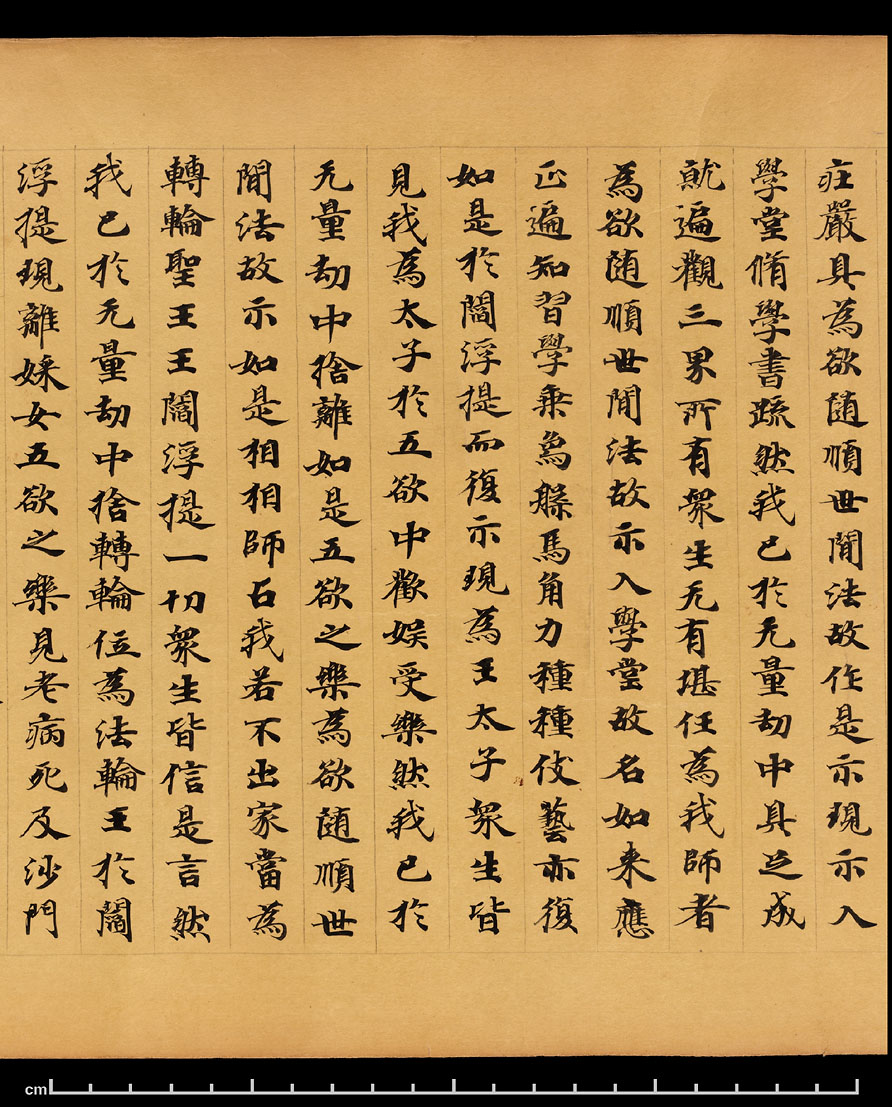 庄嚴具為欲随順世間法故作是示現示入
學堂脩學書䟽然我已於无量劫中具足成
就遍觀三界所有衆生无有堪任為我師者
為欲随順世間法故示入學堂故名如来應
正遍知習學乗烏䠂馬角力種種伎藝亦復
如是於閻浮提而復示現為王太子衆生皆
見我為太子於五欲中歡娱受樂然我已於
无量劫中捨離如是五欲之樂為欲随順世
間法故示如是相相師占我若不出家當為
轉輪聖王王閻浮提一切衆生皆信是言然
我已於无量劫中捨轉輪位為法輪王於閻
浮提現離婇女五欲之樂見老病死及沙門
cm